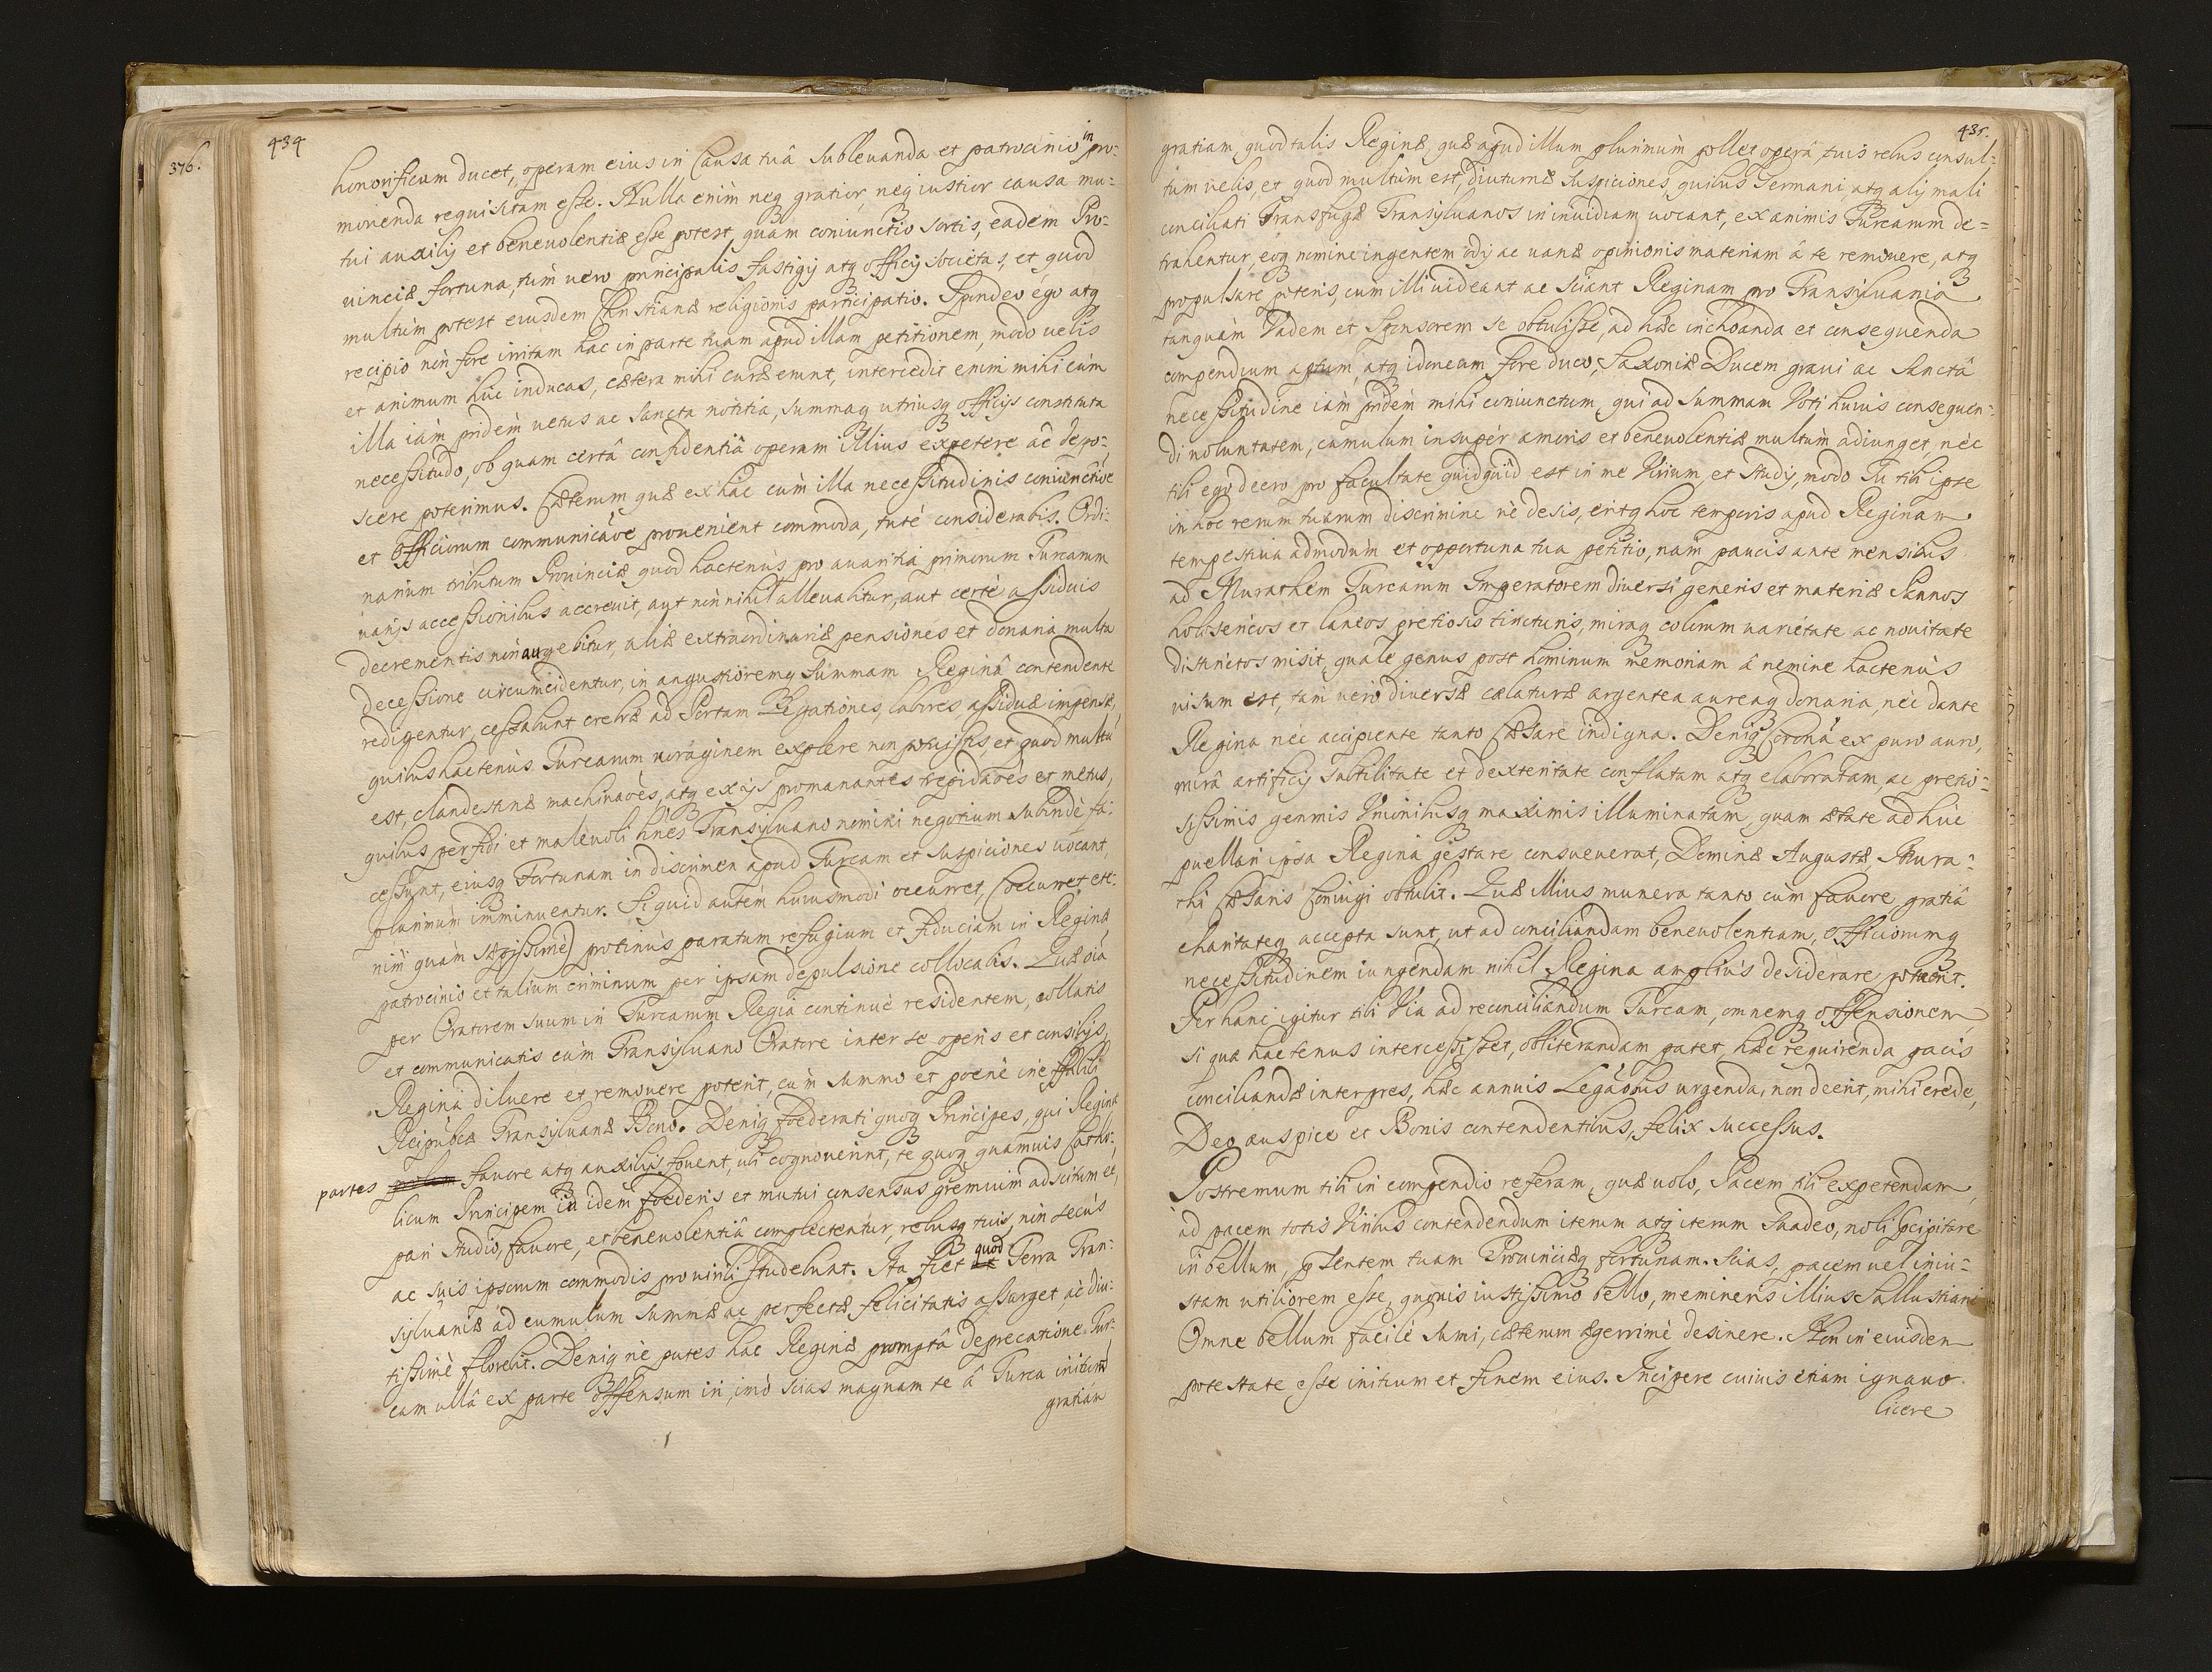 376.
434
honorificum ducet, operam eius in Causa tuâ subleuanda et patrocinio in pro-
mouenda requisitam esse. Nulla enim neq gratior, neq iustior causa mu-
tui auxilij et beneuolentiæ esse potest, quàm coniunctio sortis, eadem Pro-
uinciæ fortuna, tùm uero principalis fastigij atq officij societas, et quod
multùm potest eiusdem Christianæ religionis participatio. Spondeo ego atq
recipio non fore irritam hac in parte tuam apud illam petitionem, modo uelis
et animum huc inducas, cætera mihi curæ erunt, intercedit enim mihi cum
illa iàm pridem uetus ac sancta notitia, summaq utriusq officijs constituta
necessitudo, ob quam certâ confidentiâ operam illius expetere ac depo-
scere poterimus. Cæterum quæ ex hac cùm illa necessitudinis coniunctioe
et officiorum communicaõe prouenient commoda, tutè considerabis. Ordi-
narium tributum Prouinciæ quod hactenùs pro auaritia primorum Turcarum
uarijs accessionibus accreuit, aut non nihil alleuabitur, aut certè assiduis
decrementis non augebitur, aliæ extraordinariæ pensiones et donaria multa
decessione circumcidentur, in angustioremq summam Reginâ contendente
redigentur, cessabunt crebræ ad Portam Legationes, labores, assiduæ impensæ,
quibus hactenùs Turcarum uoraginem explere non potuistis, et quod multũ
est, clandestinæ machinaões, atq ex ijs promanantes trepidaões et metus,
quibus perfidi et maleuoli hões Transyluano nomini negotium subinde fa-
cessunt, eiusq Fortunam in discrimen apud Turcam et suspiciones uocant,
plurimùm imminuentur. Si quid autem huiusmodi occurret, (occurret ete-
nim quàm sæpissimè) protinùs paratum refugium et fiduciam in Reginæ
patrocinio et talium criminum per ipsam depulsione collocabis. Quæ oĩa
per Oratorem suum in Turcarum Regia continuè residentem, collatis
et communicatis cùm Transyluano Oratore inter se operis et consilijs,
Regina diluere et remouere poterit, cum summo et poenè ineffabili
Reipubcæ Transyluanæ Bono. Deniq foederati quoq Principes, qui Reginæ
partes favore atq auxilijs fouent, ubi cognouerint, te quoq quamuis Catho-
licum Principem in idem foederis et mutui consensus gremium adscitum ee,
pari studio, fauore, et beneuolentiâ complectentur, rebusq tuis, non secùs
ac suis ipsorum commodis pro uirili studebunt. Ita fiet quod Terra Tran-
syluaniæ ad cumulum summæ ac perfectæ felicitatis assurget, ac diu-
tissimè florebit. Deniq ne putes hac Reginæ promptâ deprecatione Tur-
cam ullâ ex parte offensum iri, imò scias magnam te â Turca initurũ
gratiam
435.
gratiam, quod talis Reginæ, quæ apud illum plurimùm pollet operâ, tuis rebus consul-
tum uelis, et quod multùm est, diuturnæ suspiciones, quibus Germani, atq alij mali
conciliati Transfugæ Transyluanos in inuidiam uocant, ex animis Turcarum de-
trahentur, eoq nomine ingentem odij ac uanæ opinionis materiam â te remouere, atq
propulsare poteris, cum illi uideant ac sciant Reginam pro Transyluania
tanquàm Vadem et Sponsorem se obtulisse, ad hæc inchoanda et consequenda
compendium aptum, atq idoneum fore duco, Saxoniæ Ducem graui ac sanctâ
necessitudine iàm pridèm mihi coniunctum, qui ad summam Voti huius consequen-
di uoluntatem, cumulum insupèr amoris et beneuolentiæ multùm adiunget, nec
tibi ego deero pro facultate quidquid est in me Virium, et studij, modo Tu tibi ipse
in hoc rerum tuarum discrimine nè desis, eritq hoc temporis apud Reginam
tempestiua admodùm et opportuna tua petitio, nàm paucis ante mensibus
ad Murathem Turcarum Imperatorem diuersi generis et materiæ Pannos
holosericos et laneos pretiosis tincturis, miraq colorum uarietate ac nouitate
distinctos misit, quale genus post hominum memoriam â nemine hactenùs
uisum est, tam uero diuersæ cælaturæ argentea aureaq donaria, nec dante
Regina nec accipiente tanto Cæsare indigna. Deniq Coronã ex puro auro,
mirâ artificij subtilitate et dexteritate conflatam atq elaboratam, ac pretio-
sissimis gemmis Unionibusq maximis illuminatam, quam ætate ad huc
puellari ipsa Regina gestare consueuerat, Dominæ Augustæ, Mura-
thi Cæsaris Coniugi obtulit. Quæ illius munera tanto cùm fauore gratiâ
charitateq accepta sunt, ut ad conciliandam beneuolentiam, officiorumq
necessitudinem iungendam nihil Regina ampliùs desiderare potuerit.
Per hanc igitur tibi Via ad reconciliandum Turcam, omnemq offensionem
si qua hactenus intercessisset, obliterandam patet, hæc requirenda pacis
conciliandæ interpres, hæc annuis Legaõnibus urgenda, non deerit, mihi crede,
Deo auspice et Bonis contendentibus, felix successus.
Postremum tibi in compendio referam, quæ uolo, Pacem tibi expetendam,
ad pacem totis Viribus contendendum iterum atq iterum suadeo, noli p̃cipitare
in bellum, p̃sentem tuam Prouinciæq fortunam. Scias, pacem uel iniu-
stam utiliorem esse, quouis iustissimo bello, memineris illius Sallustiani
Omne bellum facilè sumi, cæterum ægerrimè desinere. Non in eiusdem
potestate esse initium et finem eius. Incipere cuiuis etiam ignauo
licere